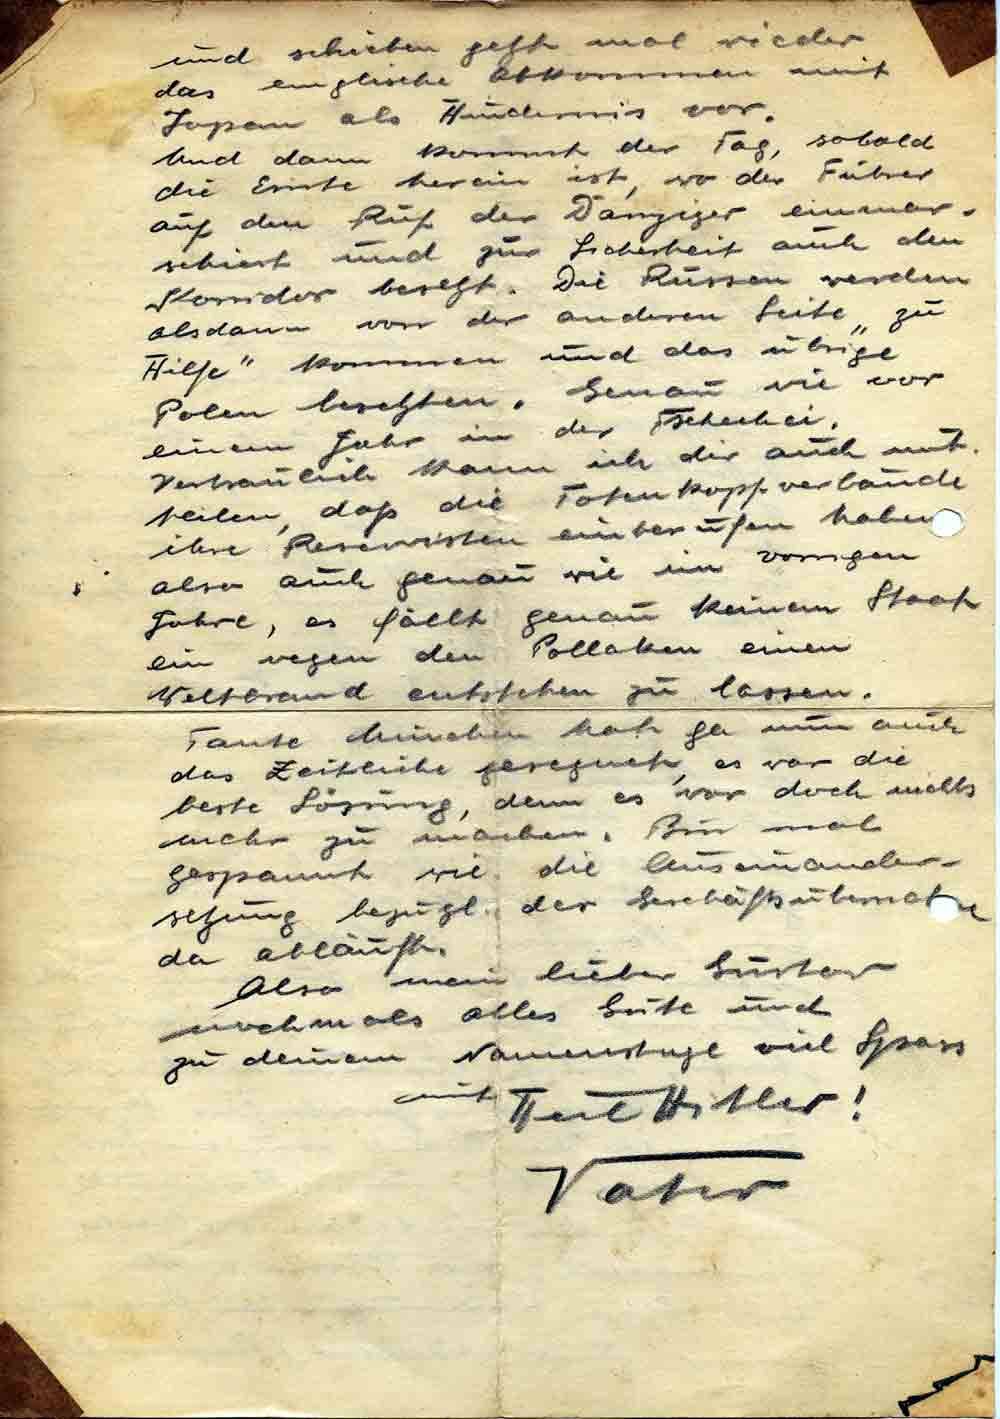 und schieben jetzt mal wieder
das englische Abkommen mit
Japan als Hindernis vor.
Und dann kommt der Tag, sobald
die Ernte herein ist, wo der Führer
auf den Ruf der Danziger einmar-
schiert und zur Sicherheit auch den
Korridor besetzt. Die Russen werden
alsdann von der anderen Seite „zu
Hilfe" kommen und das übrige
Polen besetzten. Genau wie vor
einem Jahr in der Tschechei.
Vertraulich kann ich dir auch mit-
teilen, daß die Totenkopfverbände
ihre Reservisten einberufen haben
also auch genau wie im vorigen
Jahre, es fällt genau keinem Staat
ein wegen den Pollaken einen
Weltbrand entstehen zu lassen.
Tante hat ja nun auch
das Zeitliche gesegnet, es war die
beste Lösung, denn es war doch nichts
mehr zu machen. Bin mal
gespannt wie die Auseinander-
setzung bezügl. der Geschäftsübernahme
da abläuft.
Also mein lieber Gustav
nochmals alles Gute und
zu deinem Namenstage viel Spass
mit Heil Hitler!
Vater